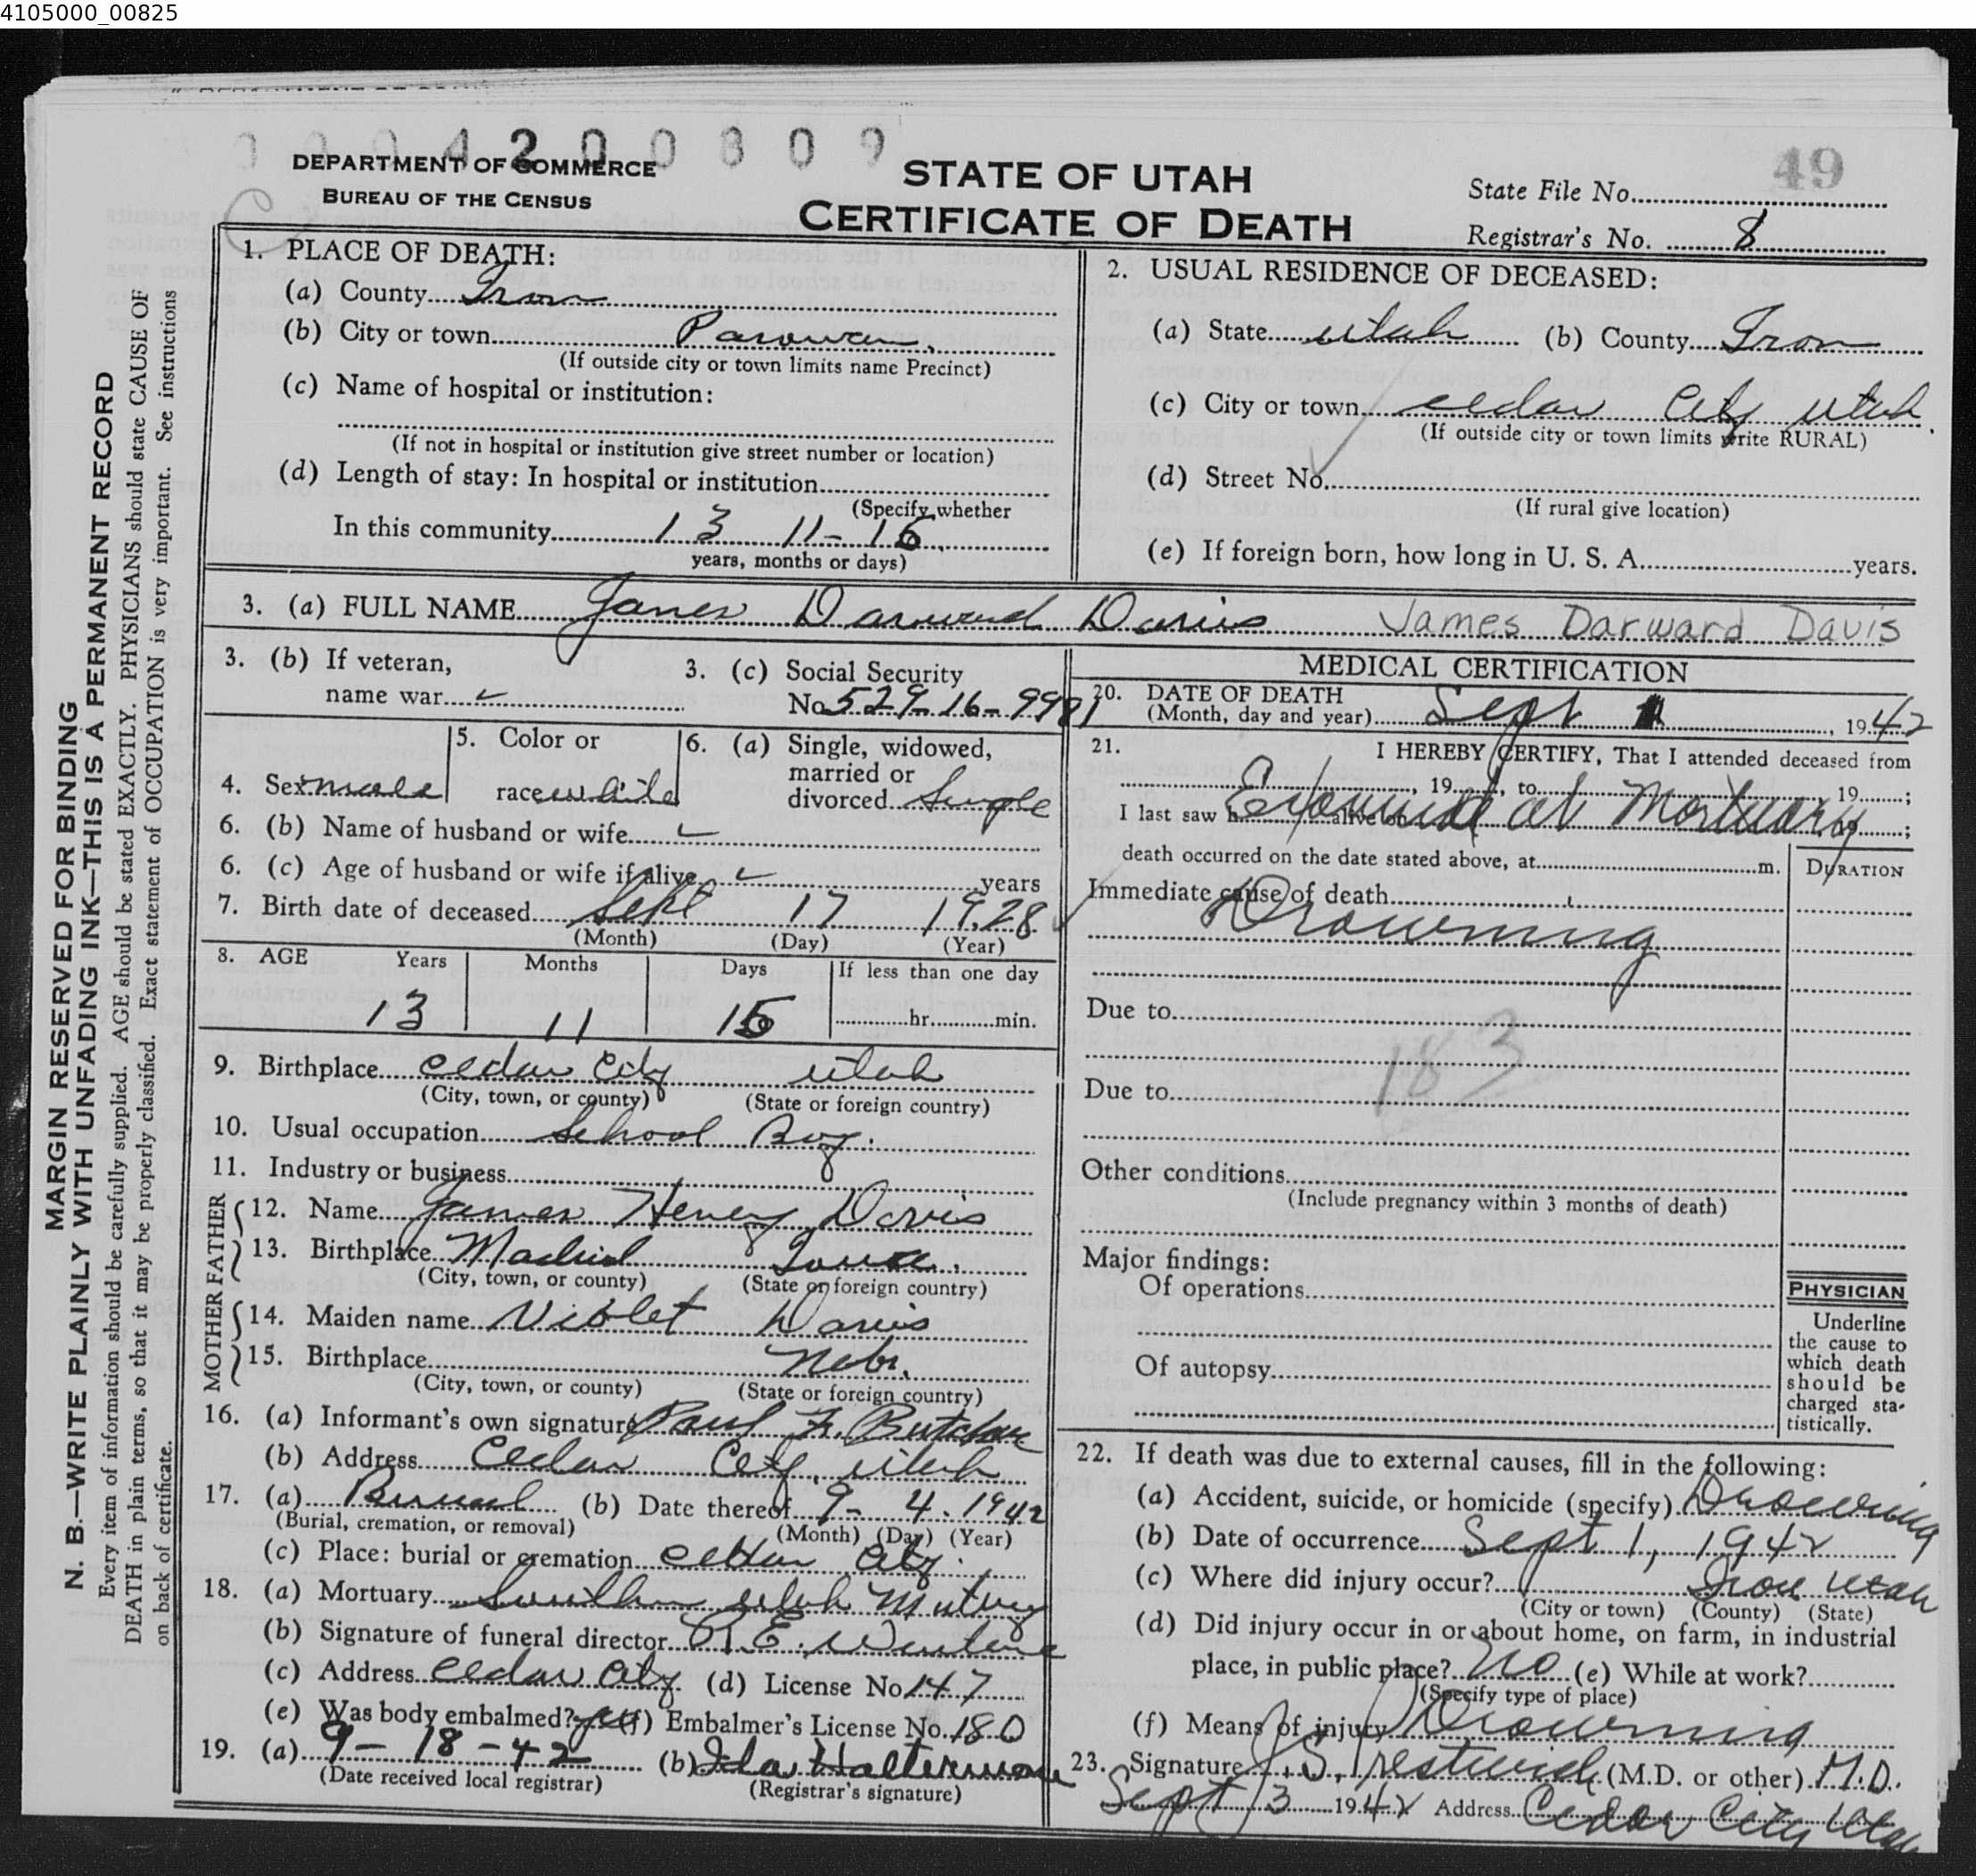 4105000_00825
0004200809
49
DEPARTMENT OF COMMERCE
BUREAU OF THE CENSUS
STATE OF UTAH
CERTIFICATE OF DEATH
State File No.
Registrar's No. 8
MARGIN RESERVED FOR BINDING
N. B.—WRITE PLAINLY WITH UNFADING INK—THIS IS A PERMANENT RECORD
Every item of information should be carefully supplied. AGE should be stated EXACTLY. PHYSICIANS should state CAUSE OF
DEATH in plain terms, so that it may be properly classified. Exact statement of OCCUPATION is very important. See instructions
on back of certificate.
1. PLACE OF DEATH:
(a) County Iron
(b) City or town Parowan.
(If outside city or town limits name Precinct)
(c) Name of hospital or institution:
(If not in hospital or institution give street number or location)
(d) Length of stay: In hospital or institution
(Specify whether
In this community 13 11-15
years, months or days)
2. USUAL RESIDENCE OF DECEASED:
(a) State Utah (b) County Iron
(c) City or town Cedar City Utah
(If outside city or town limits write RURAL)
(d) Street No.
(If rural give location)
(e) If foreign born, how long in U. S. A. years.
3. (a) FULL NAME James Darward Davis James Darward Davis
3. (b) If veteran,
name war
3. (c) Social Security
No 529-16-9981
4. Sex male
5. Color or
race white
6. (a) Single, widowed,
married or
divorced Single
6. (b) Name of husband or wife
6. (c) Age of husband or wife if alive years
7. Birth date of deceased Sept 17 1928
(Month) (Day) (Year)
8. AGE Years Months Days If less than one day
13 11 15 hr. min.
9. Birthplace Cedar City Utah
(City, town, or county) (State or foreign country)
10. Usual occupation School Boy.
11. Industry or business
FATHER
12. Name James Henery Davis
13. Birthplace Madrid Iowa.
(City, town, or county) (State or foreign country)
MOTHER
14. Maiden name Violet Davis
15. Birthplace Nebr.
(City, town, or county) (State or foreign country)
16. (a) Informant's own signature Paul
(b) Address Cedar City, Utah
17. (a) Burial (b) Date thereof 9-4.1942
(Burial, cremation, or removal) (Month) (Day) (Year)
(c) Place: burial or cremation Cedar City.
18. (a) Mortuary Southern Utah Mortuary
(b) Signature of funeral director
(c) Address Cedar City. (d) License No. 147
(e) Was body embalmed? yes (f) Embalmer's License No. 180
19. (a) 9-18-42 (b) Ida Halterman
(Date received local registrar) (Registrar's signature)
MEDICAL CERTIFICATION
20. DATE OF DEATH
(Month, day and year) Sept 1, 1942
21. I HEREBY CERTIFY, That I attended deceased from
, 19 , to 19 ;
I last saw h alive on 19 ;
Examined at Mortuary
death occurred on the date stated above, at m.
DURATION
Immediate cause of death
Drowning
Due to
183
Due to
Other conditions
(Include pregnancy within 3 months of death)
Major findings:
Of operations
Of autopsy
PHYSICIAN
Underline
the cause to
which death
should be
charged sta-
tistically.
22. If death was due to external causes, fill in the following:
(a) Accident, suicide, or homicide (specify) Drowning
(b) Date of occurrence Sept 1, 1942
(c) Where did injury occur? Iron Utah
(City or town) (County) (State)
(d) Did injury occur in or about home, on farm, in industrial
place, in public place? No (e) While at work?
(Specify type of place)
(f) Means of injury Drowning
23. Signature J. S. Prestwich (M.D. or other) M.D.
Sept 3 1942 Address Cedar City Utah